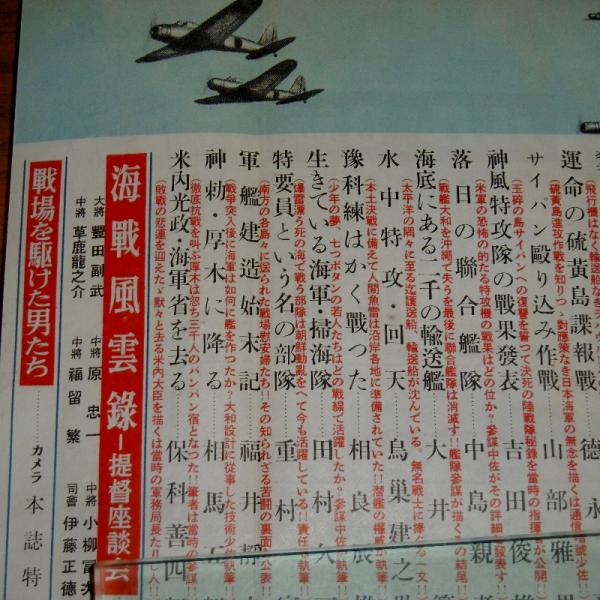 飛行機はなく輸送船なき
運命の硫黄島諜報戦 德永
(硫黄島逆攻作戦を知りつゝ對應策なき日本海軍の無念を描く
サイパン毆り込み作戦 山部雅
(玉砕の島サイパンへの復讐を誓つて決死の陸戰隊秘録を當時の指揮官が公開!
神風特攻隊の戰果發表 吉田俊
(米軍の恐怖の的たる特攻機の戰果はどの位か?參謀中佐がその詳細を發表す!!
落日の聯合艦隊 中島親
(戰艦大和を沖縄で失うを最後に聯合艦隊は消滅す!!艦隊參謀が描くその結尾
海底にある二千の輸送艦 大井
(太平洋の隅々に至る迄護送船、輸送船が沈んでいる。無名戰士に捧ぐる一文!!
水中特攻・回天 鳥巢建之
(本土決戰に備えて人間魚雷は沿岸各地に準備されていた!!潜艦の權威が執筆
豫科練はかく戰つた 相良辰
(少年の夢、七つボタンの若人たちはどの戰線で活躍したか?參謀中佐執筆
生きている海軍・掃海隊 田村久
(爆雷漂う死の海で戰う部隊は朝鮮動亂をへて今も活躍している!!責任
特要員という名の部隊 重村
(南方の各島々に送られた戰場慰安婦たち!!その知られざる苦闘の裏面
軍艦建造始末記 福井靜
(戰爭突入後に海軍は如何に艦を作つたか?大和設計に從事した技術少佐執筆
神勅・厚木に降る 相馬
(徹底抗戰を叫ぶ厚木は忽ち三千人のパンパン宿となつた!!筆者は當時の參謀
米內光政・海軍省を去る 保科善四
(敗戰の悲運を迎えたゞ默々と去る米內大臣を描くは當時の軍務局長
海戰風雲錄―提督座談会
大將 豐田副武 中將 原忠一 中將 小柳冨次
中將 草鹿龍之介 中將 福留繁 司會 伊藤正德
戰場を駆けた男たち……カメラ 本誌特